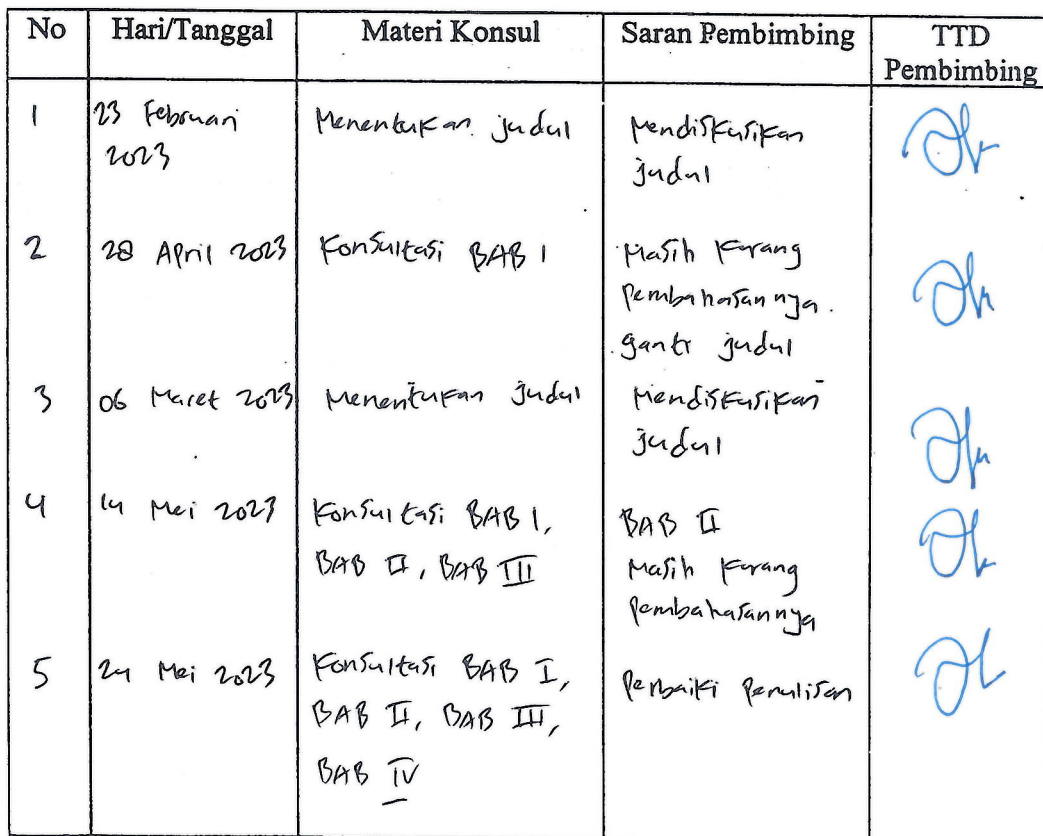 No Hari/Tanggal Materi Konsul Saran Pembimbing TTD
Pembimbing
1 23 Februari Menentukan judul Mendiskusikan
2023 judul
2 28 April 2023 Konsultasi BAB I Masih Kurang
Pembahasannya.
ganti judul
3 06 Maret 2023 Menentukan judul Mendiskusikan
judul
4 14 Mei 2023 Konsultasi BAB I, BAB II
BAB II, BAB III Masih Kurang
Pembahasannya
5 24 Mei 2023 Konsultasi BAB I, Perbaiki Penulisan
BAB II, BAB III,
BAB IV